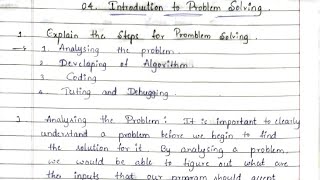 04. Introduction to Problem Solving.
1. Explain the Steps for Promblem Solving.
→ 1. Analysing the problem.
2. Developing of Algorithm
3. Coding
4. Testing and Debugging.
Analysing the Problem: It is important to clearly
understand a problem before we begin to find
the solution for it. By analysing a problem
we would be able to figure out what are
the inputs that our program should accept